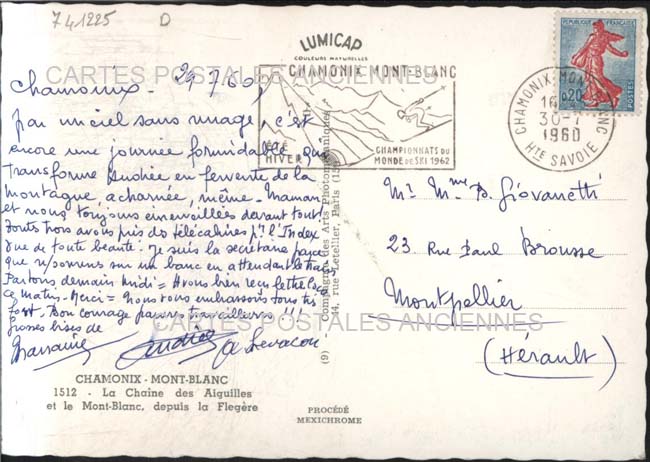 741225 D
LUMICAP
COULEURS NATURELLES
CARTES POSTALES ANCIENNES
CHAMONIX MONT-BLANC
ÉTÉ
HIVER
CHAMPIONNATS DU
MONDE DE SKI 1962
RÉPUBLIQUE FRANÇAISE
0,20
POSTES
CHAMONIX-MONT-BLANC
16
30-7
1960
HTE SAVOIE
Chamonix. 29.7.60.
par un ciel sans nuage, c'est
encore une journée formidable qui
transforme Andrée en fervente de la
montagne, acharnée, même. Maman
et nous toujours émerveillées devant tout!
toutes trois avons pris les télécabines pr. l'Index
vue de toute beauté. Je suis la secrétaire
que n/sommes sur un banc en attendant le
Partons demain midi = Avons bien reçu lettre
ce matin. Merci = Nous vous embrassons tous très
fort. Bon courage pauvres travailleurs !!!
Grosses bises de
Marraine Andrée
Mr. Mme. Giovanetti
23. Rue Paul Brousse
Montpellier
(Hérault)
(9) Compagnie des Arts Photomécaniques
44, rue Letellier, Paris (15e)
CARTES POSTALES ANCIENNES
CHAMONIX - MONT-BLANC
1512 - La Chaîne des Aiguilles
et le Mont-Blanc, depuis la Flegère
PROCÉDÉ
MEXICHROME